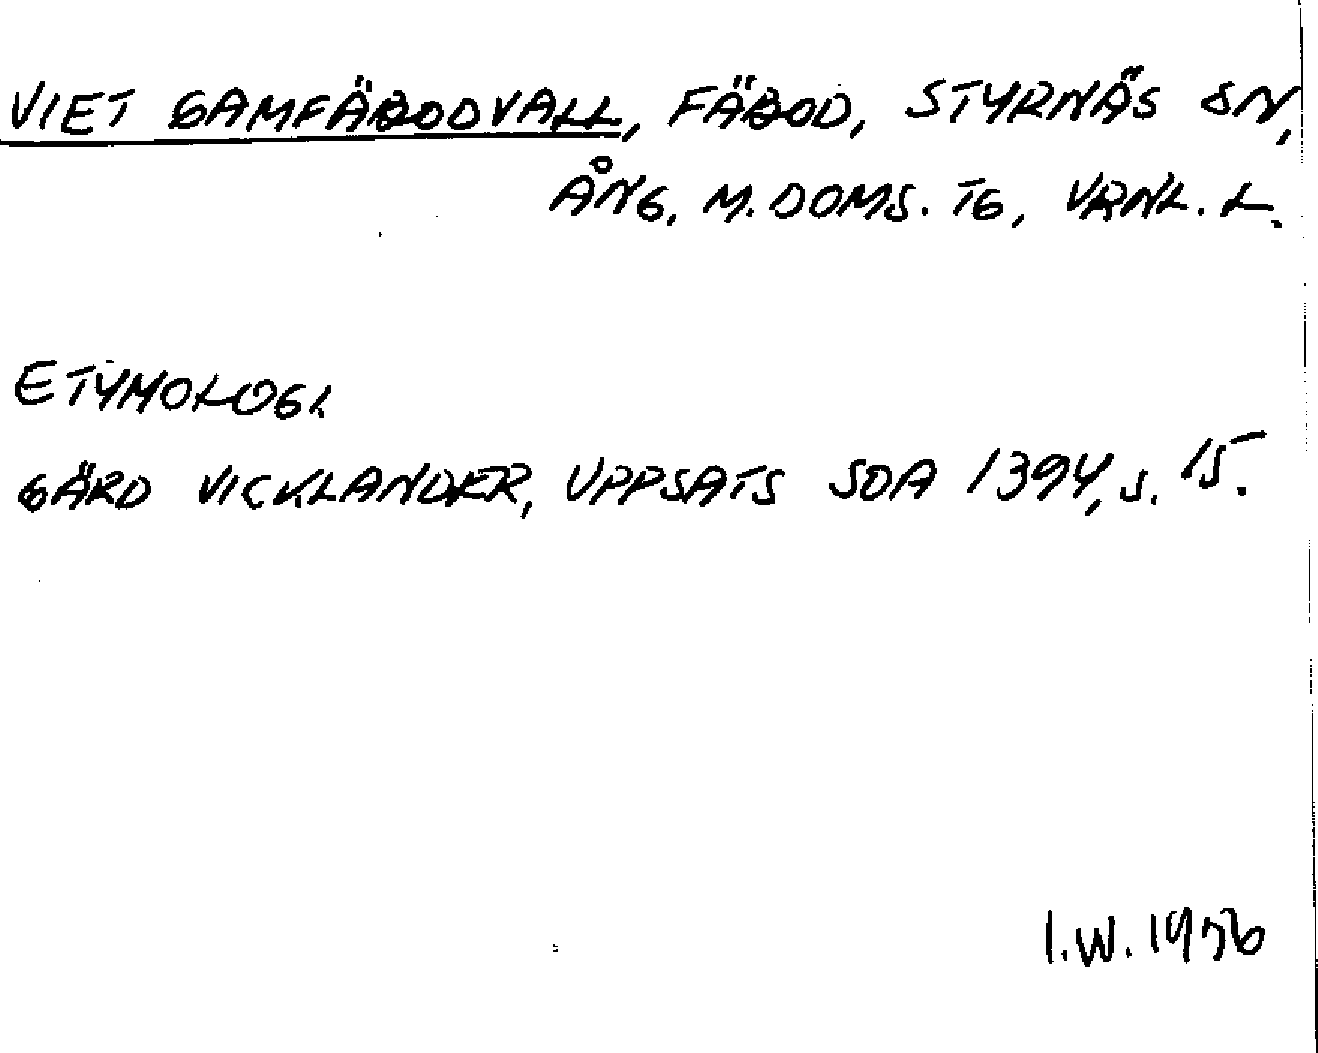 VIET GAMFÄBODVALL, FÄBOD, STYRNÄS SN,
ÅNG, M. DOMS. TG, VRNL. L.
ETYMOLOGI.
GÄRD VICKLANDER, UPPSATS SOA 1394, S. 15.
I.W. 1976